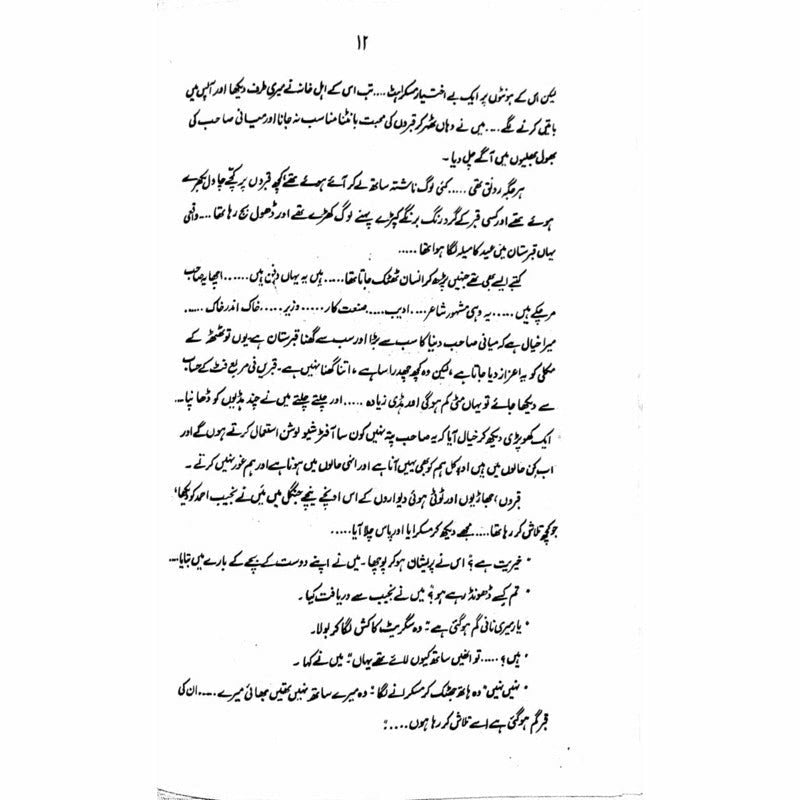 ۱۲
لیکن اس کے ہونٹوں پر ایک بے اختیار مسکراہٹ .... تب اس کے اہل خانہ نے میری طرف دیکھا اور آپس میں
باتیں کرنے لگے .... میں نے وہاں ٹھہر کر قبروں کی محبت بانٹنا مناسب نہ جانا اور میانی صاحب کی
بھول بھلیوں میں آگے چل دیا ۔
ہر جگہ رونق تھی ..... کئی لوگ ناشتہ ساتھ لے کر آئے ہوئے تھے کچھ قبروں پر کچے چاول بکھرے
ہوئے تھے اور کسی قبر کے گرد رنگ برنگے کپڑے پہنے لوگ کھڑے تھے اور ڈھول بج رہا تھا .... واقعی
یہاں قبرستان میں عید کا میلہ لگا ہوا تھا .....
کتبے ایسے بھی تھے جنہیں پڑھ کر انسان ٹھٹک جاتا تھا ..... ہیں یہ یہاں دفن ہیں ...... اچھا یہ صاحب
مر چکے ہیں ..... یہ وہی مشہور شاعر .... ادیب ..... صنعت کار ..... وزیر ..... خاک اندر خاک ......
میرا خیال ہے کہ میانی صاحب دنیا کا سب سے بڑا اور سب سے گھنا قبرستان ہے۔ یوں تو ٹھٹھر کے
مکلی کو یہ اعزاز دیا جاتا ہے، لیکن وہ کچھ چھدرا سا ہے ، اتنا گھنا نہیں ہے۔ قبریں فی مربع فٹ کے حساب
سے دیکھا جائے تو یہاں مٹی کم ہوگی اور ہڈی زیادہ ..... اور چلتے چلتے میں نے چند ہڈیوں کو ڈھانپا ....
ایک کھوپڑی دیکھ کر خیال آیا کہ یہ صاحب پتہ نہیں کون سا آفٹر شیو لوشن استعمال کرتے ہوں گے اور
اب کن حالوں میں ہیں اور کل ہم کو بھی یہیں آنا ہے اور انہی حالوں میں ہونا ہے اور ہم غور نہیں کرتے ۔
قبروں ، جھاڑیوں اور ٹوٹی ہوئی دیواروں کے اس اونچے نیچے جنگل میں میں نے نجیب احمد کو دیکھا،
جو کچھ تلاش کر رہا تھا .... مجھے دیکھ کر مسکرایا اور پاس چلا آیا .....
" خیریت ہے ؟" اس نے پریشان ہو کر پوچھا ۔ میں نے اپنے دوست کے بچے کے بارے میں بتایا ....
" تم کسے ڈھونڈ رہے ہو ؟" میں نے نجیب سے دریافت کیا ۔
" یار میری نانی گم ہو گئی ہے " وہ سگریٹ کا کش لگا کر بولا۔
" ہیں ؟ ..... تو انہیں ساتھ کیوں لائے تھے یہاں " میں نے کہا ۔
" نہیں نہیں " وہ ہاتھ جھٹک کر مسکرانے لگا " وہ میرے ساتھ نہیں تھیں بھائی میرے ..... ان کی
قبر گم ہو گئی ہے اسے تلاش کر رہا ہوں ..... "